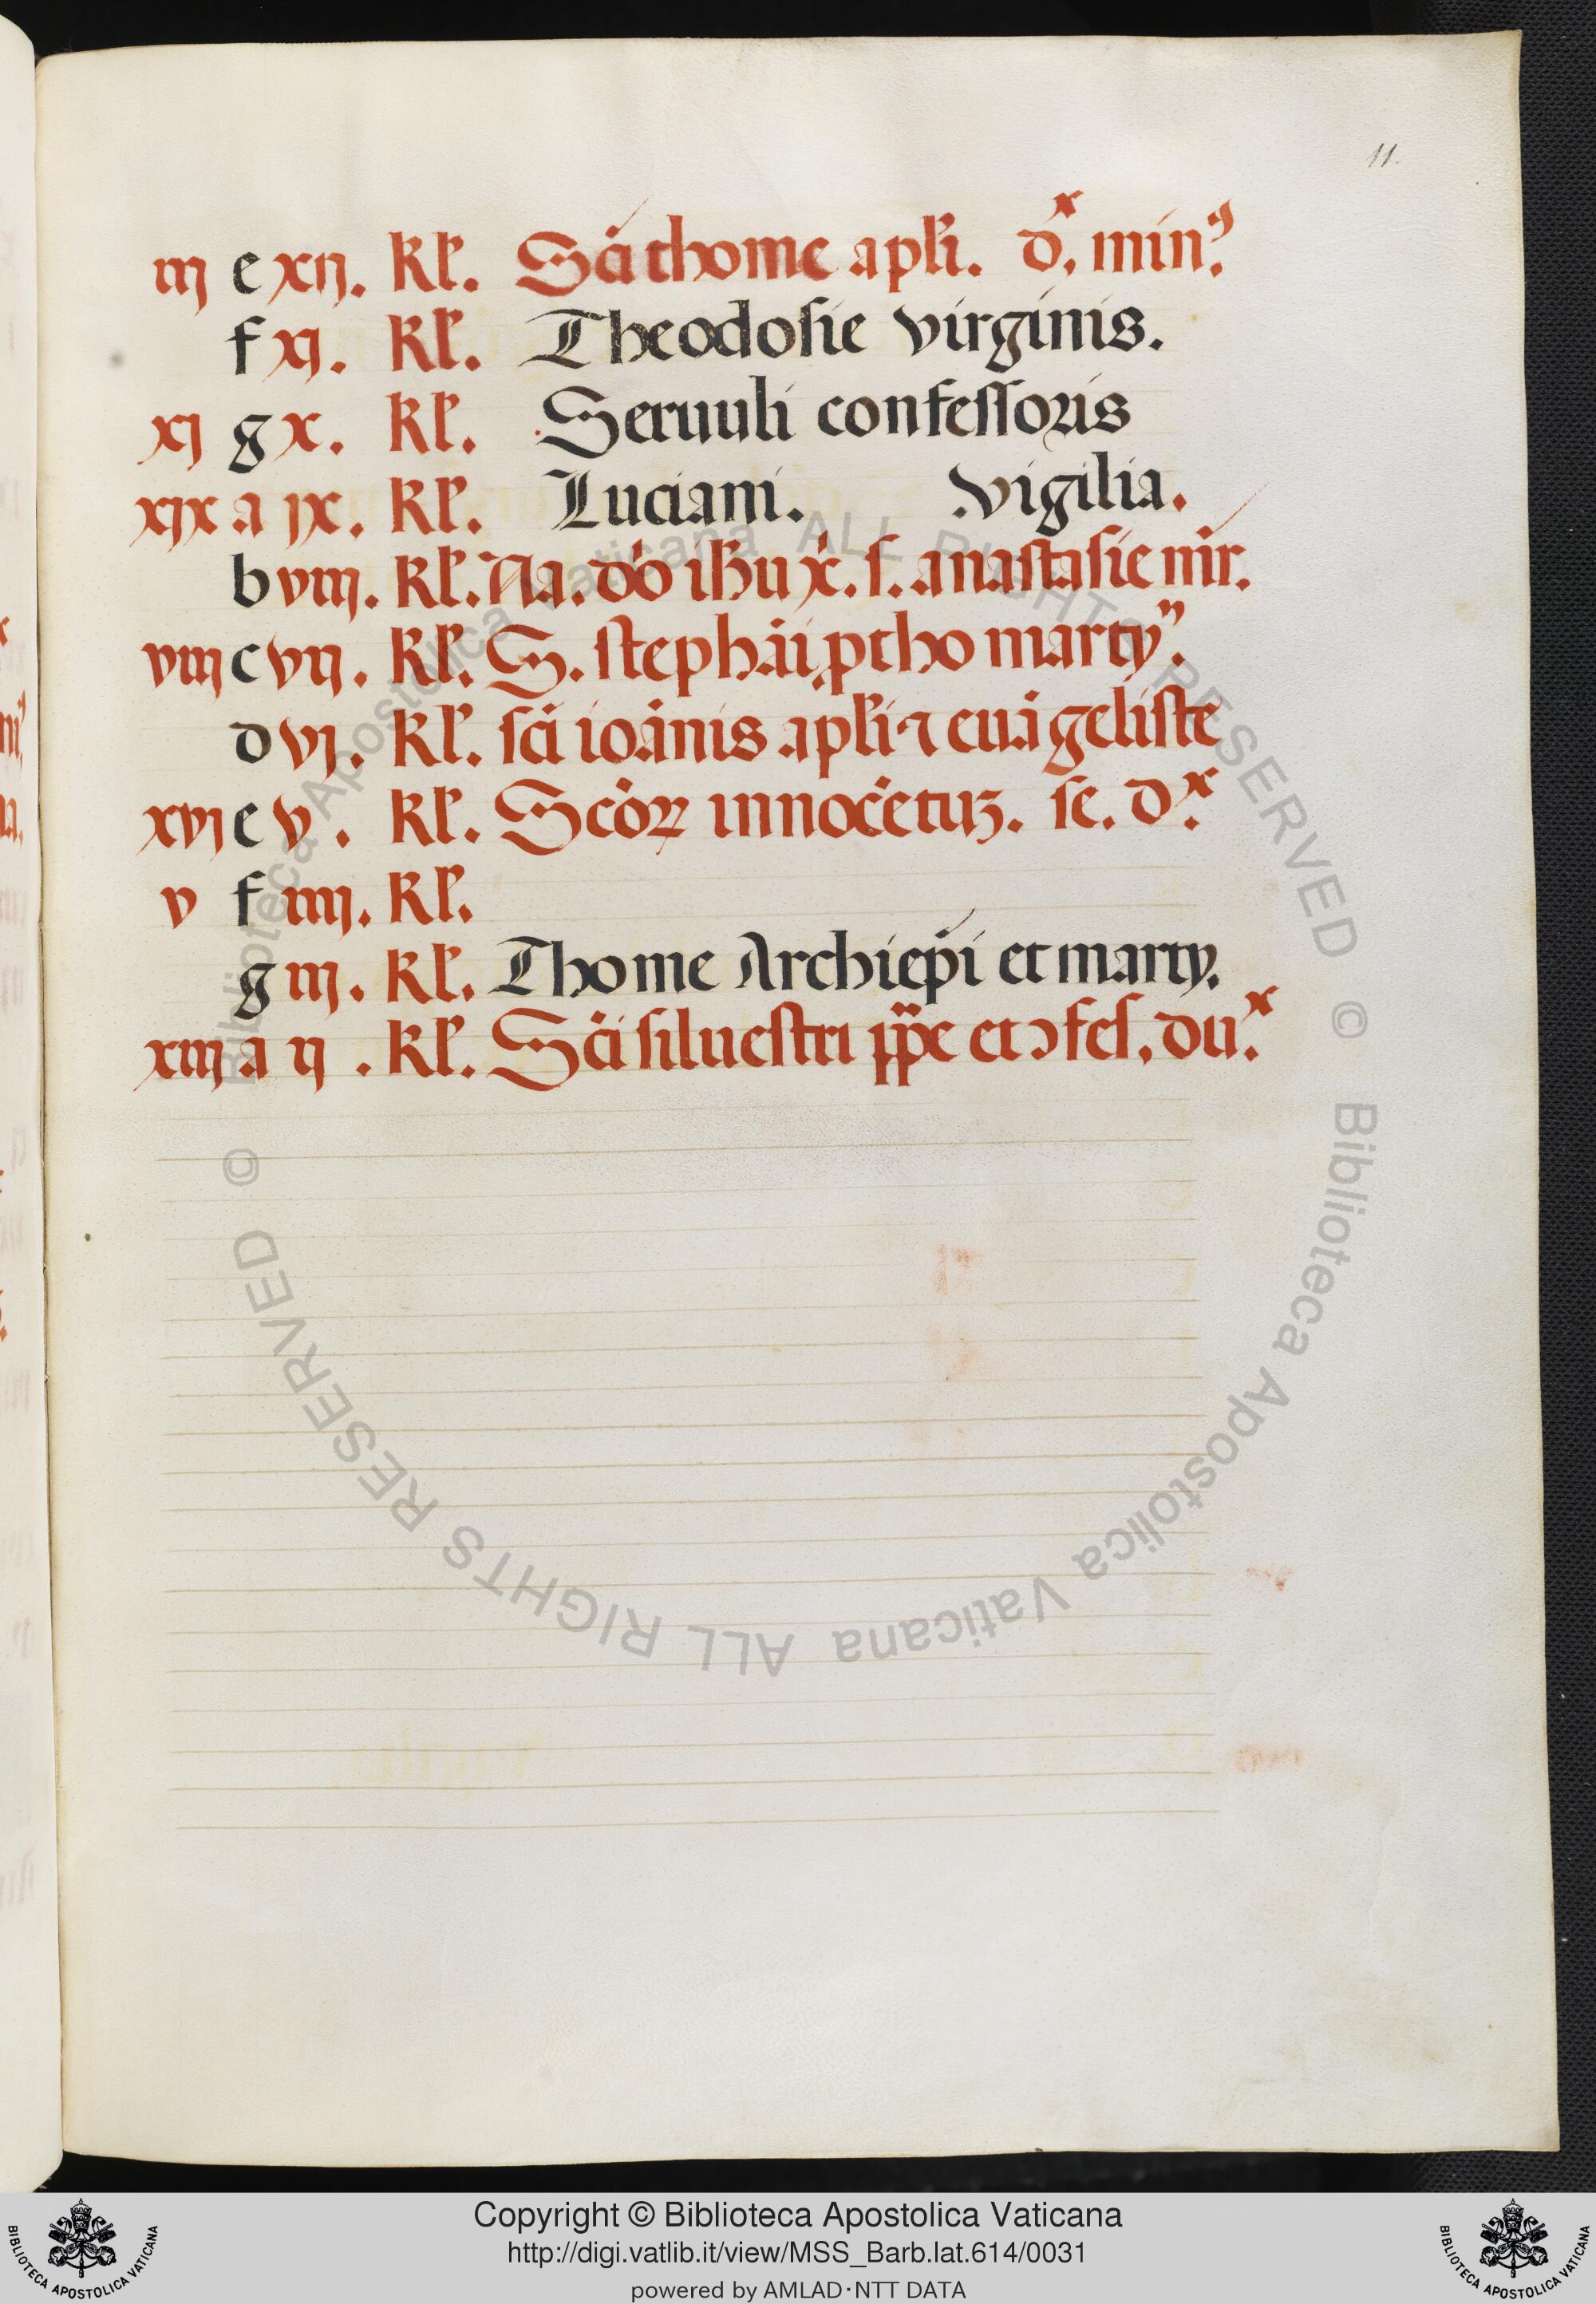 11.
iij e xij. kl. Sci thome apli. dx. min9.
f xj. kl. Theodosie virginis.
xj g x. kl. Seruuli confessoris
xix a ix. kl. Luciani. Vigilia.
b viij. kl. Na. dō ihu xi. s. anastasie mr.
viij c vij. kl. S. stephāi ptho marty".
d vj. kl. sci ioānis apli ⁊ euāgeliste
xvj e v. kl. Scōꝝ innocētuꝫ. se. dx.
v f iiij. kl.
g iij. kl. Thome Archiepi et marty.
xiij a ij. kl. Sci siluestri ppe et ɔfes. dux.
Copyright © Biblioteca Apostolica Vaticana
http://digi.vatlib.it/view/MSS_Barb.lat.614/0031
powered by AMLAD·NTT DATA
BIBLIOTECA APOSTOLICA VATICANA
BIBLIOTECA APOSTOLICA VATICANA
© Biblioteca Apostolica Vaticana ALL RIGHTS RESERVED © Biblioteca Apostolica Vaticana ALL RIGHTS RESERVED